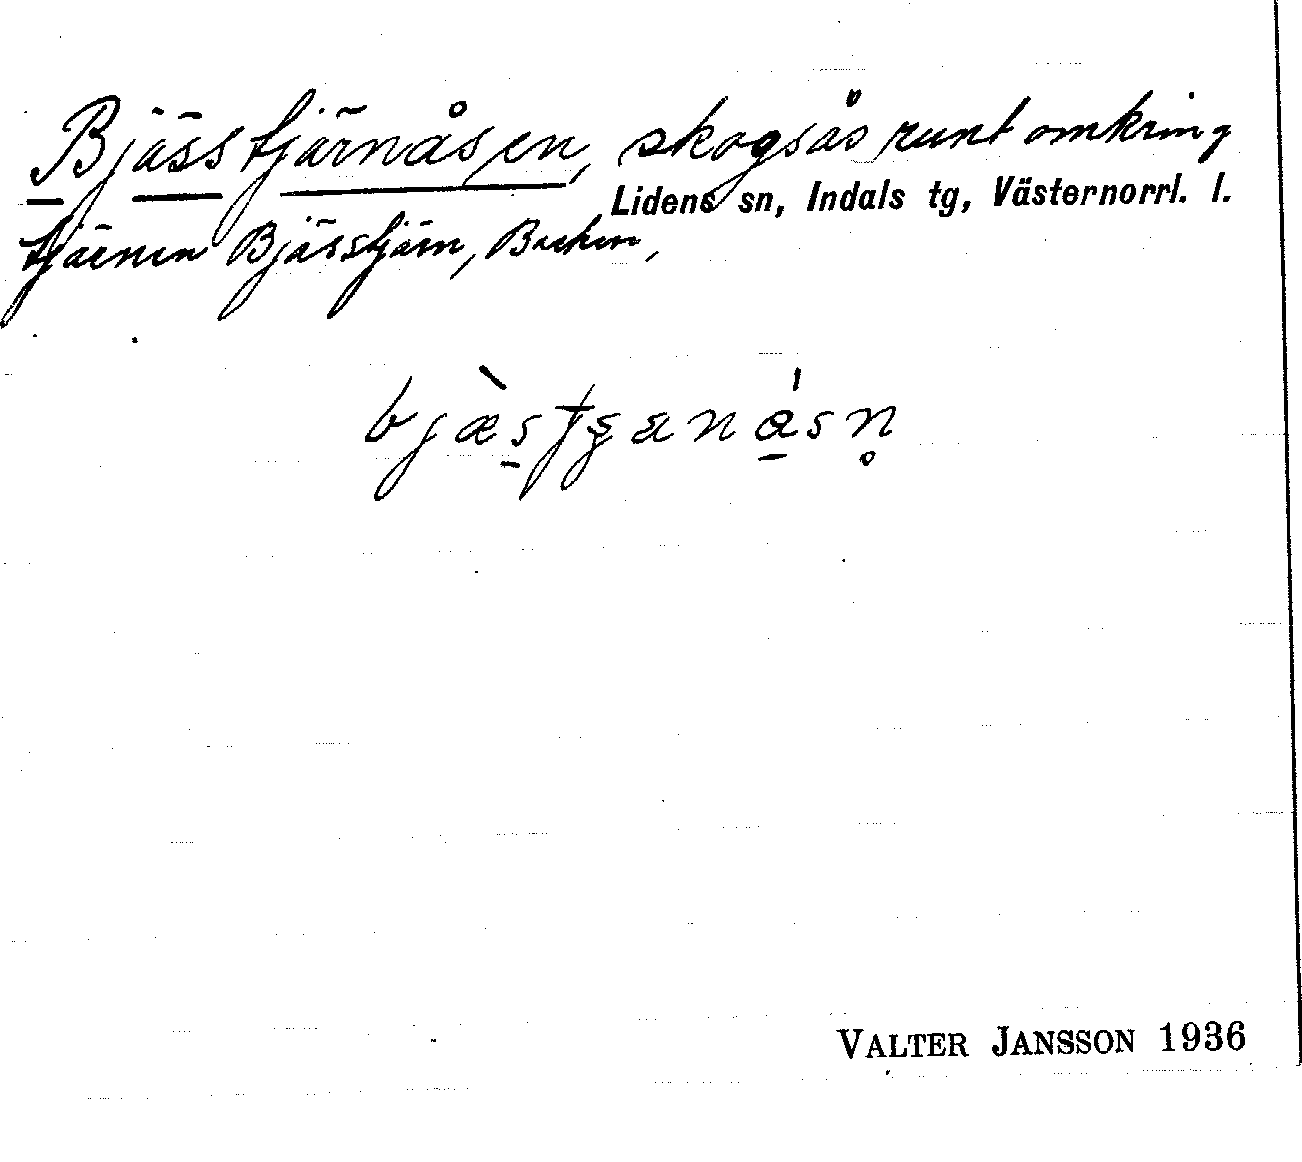 Bjässtjärnåsen, skogsås runt omkring
Lidens sn, Indals tg, Västernorrl. l.
tjärnen Bjässtjärn, Backen,
VALTER JANSSON 1936